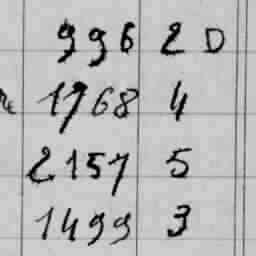 996 2 D
1768 4
2157 5
1499 3